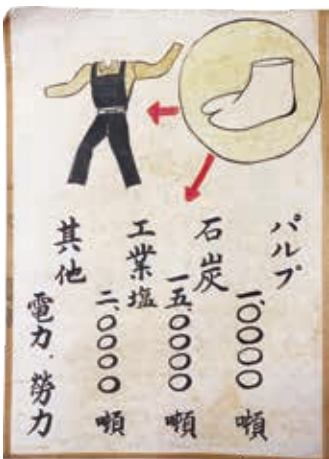 パルプ
一、〇〇〇〇噸
石炭
一五、〇〇〇〇噸
工業塩
二、〇〇〇〇噸
其他
電力、勞力